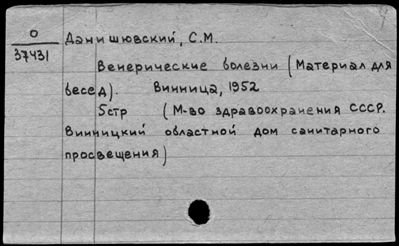 О
37431
Данишювский, С.М.
Венерические болезни (Материал для
бесед). Винница, 1952
5стр (М-во здравоохранения СССР.
Винницкий областной дом санитарного
просвещения)